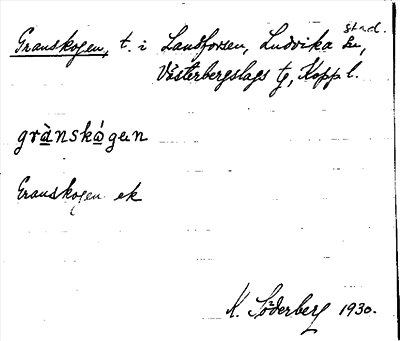 Granskogen, t. i Landforsen, Ludvika stad.
Västerbergslags tg, Koppl.
grànskógen
Granskogen ek
K. Söderberg 1930.